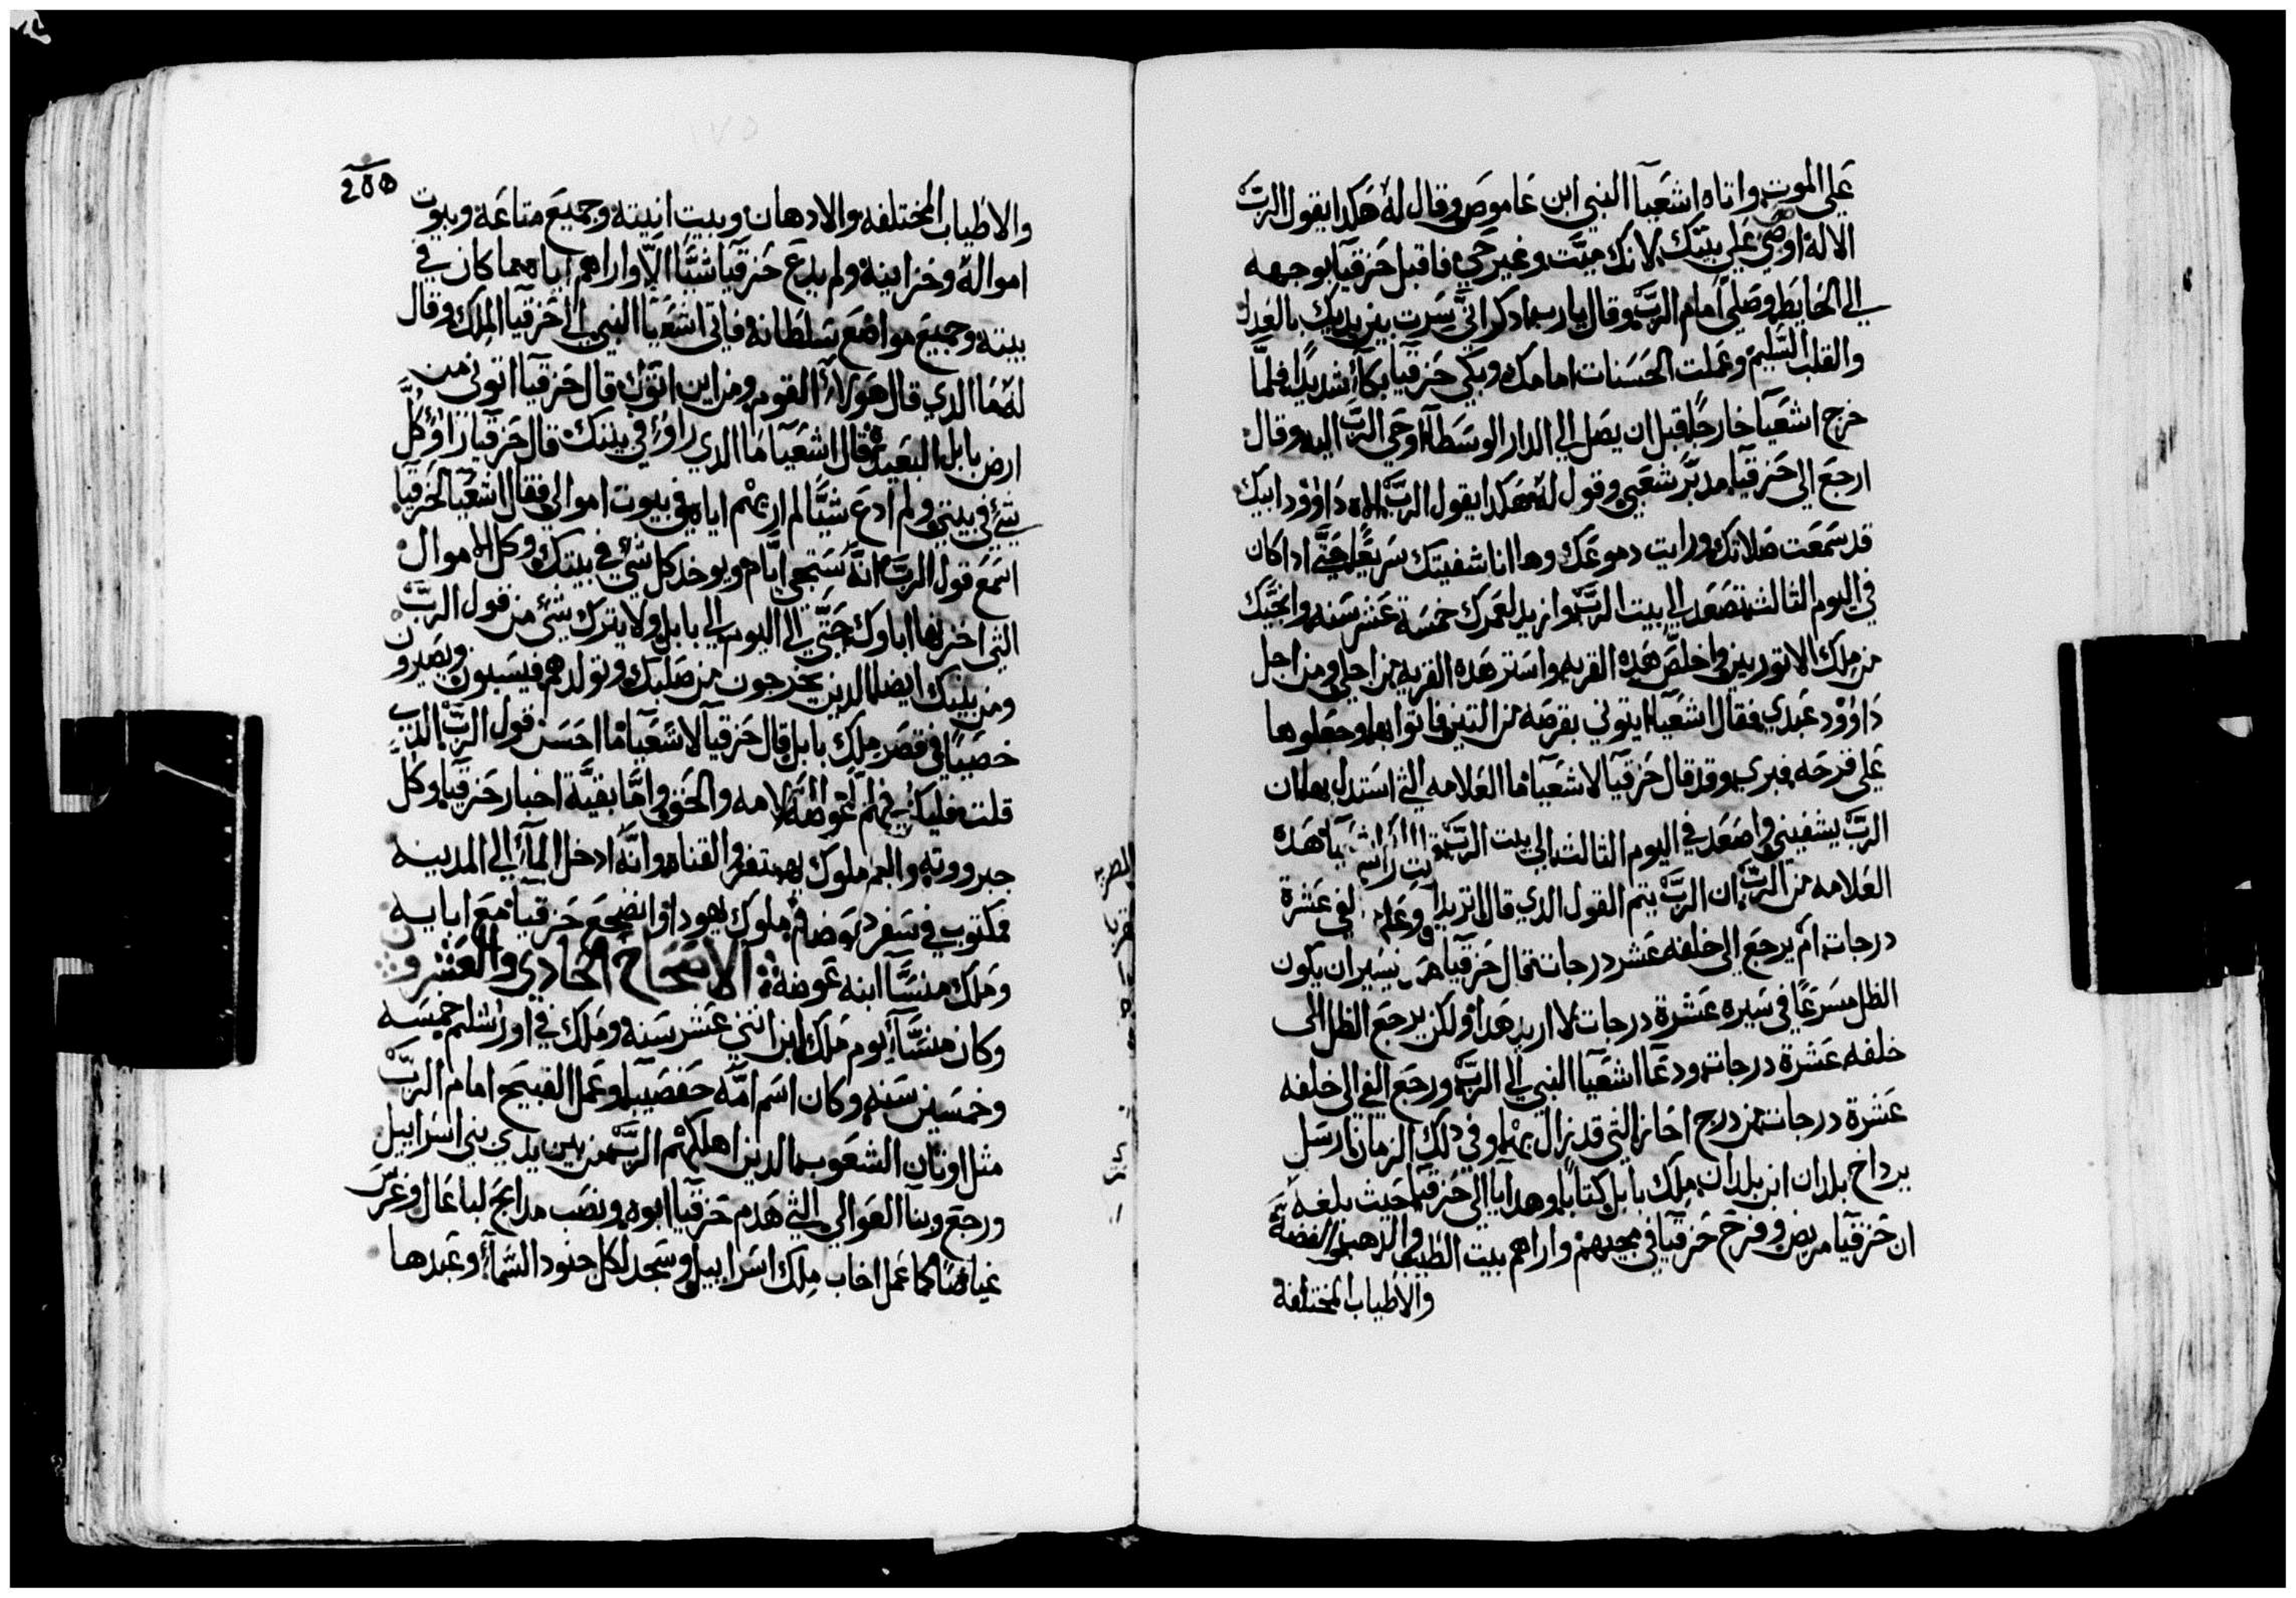 علي الموت واتاه اشعيآ النبي ابن عاموص وقال له هكدا يقول الربّ
الاله اوصي علي بيتك لانك ميّت وغير حي فاقبل حزقيآ بوجهه
الي الحايط وصلي امام الربّ وقال يا رب ادكر انّي سرت بين يديك بالعدل
والقلب السّليم وعملت الحسنات امامك وبكي حزقيآ بكآء شديدًا فلمّا
خرج اشعيآ خارجًا قبل ان يصل الي الدار الوسطآ اوحي الربّ اليه وقال
ارجع الي حزقيآ مدبّر شعبي وقول له هكدا يقول الربّ اله داوُود ابيك
قد سمعت صلاتك ورايت دموعك وها انا شفيتك سريعًا حتّي ادا كان
في اليوم التالت تصعد الي بيت الربّ وازيد لعمرك خمسة عشر سنه وانجّيك
من ملك الاتوريين واخلص هده القريه واستر هده القريه من اجلي ومن اجل
داوُود عبدي فقال اشعيآ ايتوني بقرصه من التين فاتوا بها وجعلوها
علي قرحه فبري وقد قال حزقيآ لاشعيآ ما العلامه التي استدل بها ان
الربّ يشفيني واصعد في اليوم التالت الي بيت الربّ هده
العلامه من الربّ ان الربّ يتم القول الدي قال اتريد عشرة
درجات ام يرجع الي خلفه عشر درجات قال حزقيآ يسير ان يكون
الظل مسرعًا في سيره عشرة درجات لا اريد هدا ولكن يرجع الظل الي
خلفه عشرة درجات ودعآ اشعيآ النبي الي الربّ ورجع الفي الي خلفه
عشرة درجات من درج احاز التي قد نزال بها وفي دلك الزمان ارسل
برداخ بلدان ابن بلدان ملك بابل كتابًا وهدايا الي حزقيآ حيث بلغه
ان حزقيآ مريض وفرح حزقيآ في مجيهم واراهم بيت الطيب والدهب والفضة
والاطياب المختلفة
٢٥٥
والاطياب المختلفه والادهان وبيت انيته وجميع متاعه وبيوت
امواله وخزاينه ولم يدع حزقيآ شيًّا الّا واراهم اياه مما كان في
بيته وجميع مواضع سلطانه فاتي اشعيآ النبي الي حزقيآ الملك وقال
له ما الدي قال هولآء القوم ومن اين اتوك قال حزقيآ اتوني من
ارض بابل البعيدة قال اشعيآ ما الدي راوُا في بيتك قال حزقيآ راوُا كلّ
شيء في بيتي ولم ادع شيًّا لم اريهم اياه في بيوت اموالي فقال اشعيآ لحزقيآ
اسمع قول الربّ انّه ستجي ايّام ويوخد كل شيء في بيتك وكل الاموال
التي اخزنها اباوك حتّي الي اليوم الي بابل ولا يترك شيء من قول الربّ
ومن بنيك ايضا الدين يخرجون من صلبك وتولدهم فيسبون ويصيرون
خصيًا في قصر ملك بابل قال حزقيآ لاشعيآ ما احسن قول الربّ الدي
قلت فليكن والحق وامّا بقيّة اخبار حزقيآ وكل
جبرووته والعم ملوك يهتفر والقناه وانّه ادخل المآء الي المدينه
مكتوب في سفر ملوك يهودا وانضجع حزقيآ مع ابايه
وملك منسّآ ابنه عوضه الاصحاح الحادي والعشرون
وكان منسّآ يوم ملك ابن اتني عشر سنه وملك في اورشليم خمسه
وخمسين سنه وكان اسم امّه حفصيبا وعمل القبيح امام الربّ
مثل اوتان الشعوب الدين اهلكهم الربّ من بين يدي بني اسراييل
ورجع وبنآ العوالي التي هدم حزقيآ ابوه ونصب مدابح لباعال وغرس
غياضًا كما عمل اخاب ملك اسراييل وسجد لكل جنود السّمآء وعبدها